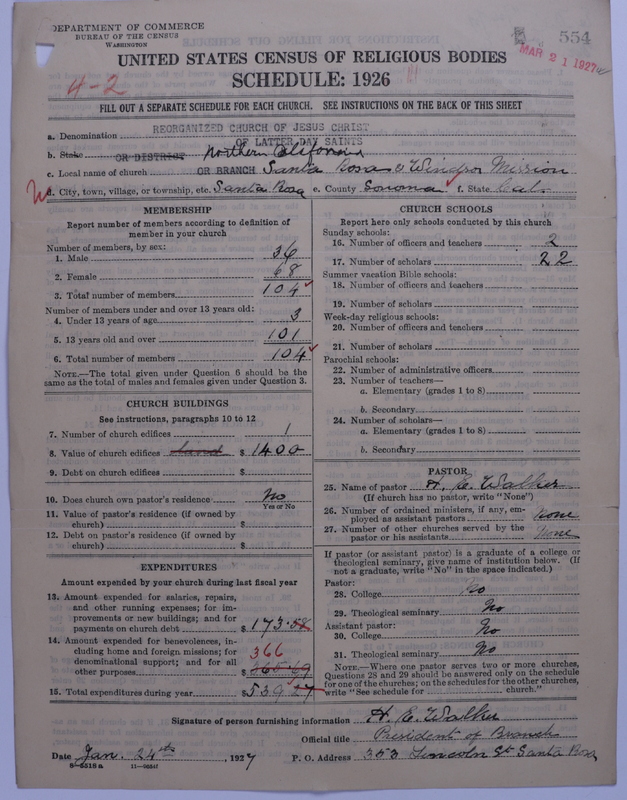 DEPARTMENT OF COMMERCE
BUREAU OF THE CENSUS
WASHINGTON
554
MAR 21 1927
UNITED STATES CENSUS OF RELIGIOUS BODIES
4-2
SCHEDULE: 1926
FILL OUT A SEPARATE SCHEDULE FOR EACH CHURCH. SEE INSTRUCTIONS ON THE BACK OF THIS SHEET
a. Denomination REORGANIZED CHURCH OF JESUS CHRIST
OF LATTER DAY SAINTS
b. Stake OR DISTRICT Northern California
c. Local name of church OR BRANCH Santa Rosa & Windsor Mission
d. City, town, village, or township, etc. Santa Rosa e. County Sonoma f. State Cal.
MEMBERSHIP
Report number of members according to definition of
member in your church
Number of members, by sex:
1. Male 36
2. Female 68
3. Total number of members 104
Number of members under and over 13 years old:
4. Under 13 years of age 3
5. 13 years old and over 101
6. Total number of members 104
NOTE.—The total given under Question 6 should be the
same as the total of males and females given under Question 3.
CHURCH BUILDINGS
See instructions, paragraphs 10 to 12
7. Number of church edifices 1
8. Value of church edifices land $ 1400
9. Debt on church edifices $
10. Does church own pastor's residence No
Yes or No
11. Value of pastor's residence (if owned by
church) $
12. Debt on pastor's residence (if owned by
church) $
EXPENDITURES
Amount expended by your church during last fiscal year
13. Amount expended for salaries, repairs,
and other running expenses; for im-
provements or new buildings; and for
payments on church debt $ 173.58
14. Amount expended for benevolences, in-
cluding home and foreign missions; for
denominational support; and for all
other purposes $ 365.69
366
15. Total expenditures during year $ 539.27
CHURCH SCHOOLS
Report here only schools conducted by this church
Sunday schools:
16. Number of officers and teachers 2
17. Number of scholars 22
Summer vacation Bible schools:
18. Number of officers and teachers
19. Number of scholars
Week-day religious schools:
20. Number of officers and teachers
21. Number of scholars
Parochial schools:
22. Number of administrative officers
23. Number of teachers—
a. Elementary (grades 1 to 8)
b. Secondary
24. Number of scholars—
a. Elementary (grades 1 to 8)
b. Secondary
PASTOR
25. Name of pastor H. E. Walker
(If church has no pastor, write "None")
26. Number of ordained ministers, if any, em-
ployed as assistant pastors None
27. Number of other churches served by the
pastor or his assistants None
If pastor (or assistant pastor) is a graduate of a college or
theological seminary, give name of institution below. (If
not a graduate, write "No" in the space indicated.)
Pastor:
28. College No
29. Theological seminary No
Assistant pastor:
30. College No
31. Theological seminary No
NOTE.—Where one pastor serves two or more churches,
Questions 28 and 29 should be answered only on the schedule
for one of the churches; on the schedules for the other churches,
write "See schedule for church."
Signature of person furnishing information H. E. Walker
Official title President of Branch
Date Jan. 24th, 1927 P. O. Address 353 Lincoln St Santa Rosa
8-5518a 11-9554f